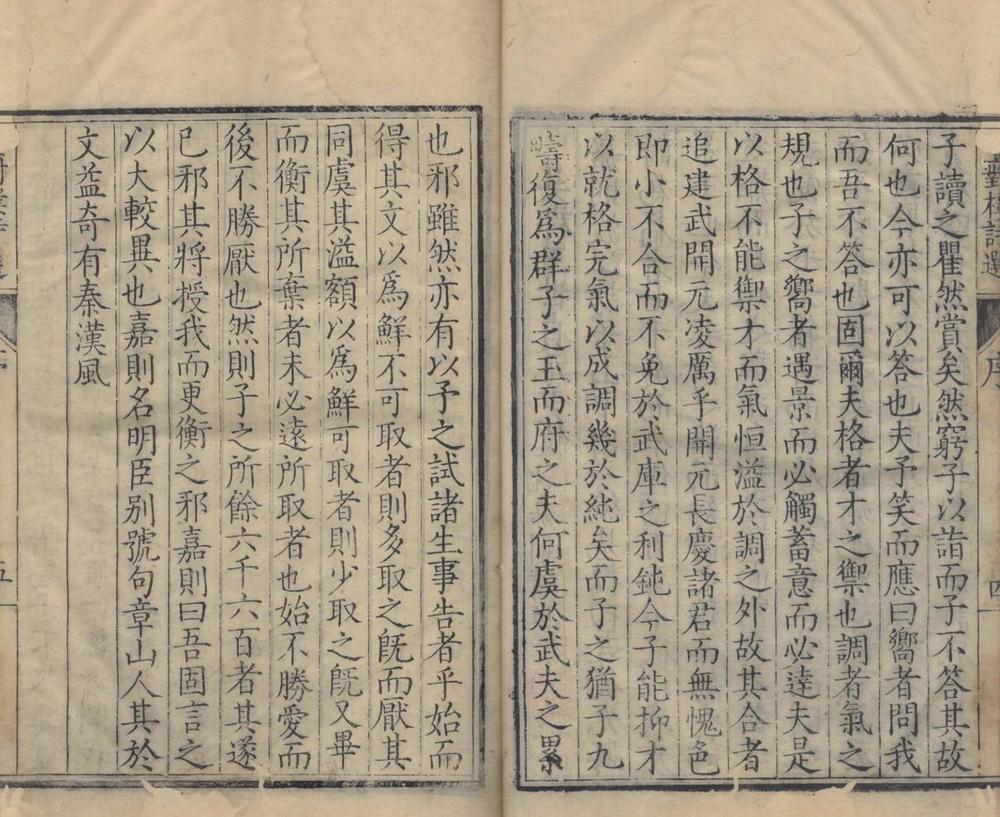 子讀之瞿然賞矣然窮子以詣而子不答其故
何也今亦可以答也夫予笑而應曰嚮者問我
而吾不答也固爾夫格者才之禦也調者氣之
規也子之嚮者遇景而必觸蓄意而必達夫是
以格不能禦才而氣恒溢於調之外故其合者
追建武開元凌厲乎開元長慶諸君而無愧色
即小不合而不免於武庫之利鈍今子能抑才
以就格完氣以成調幾於純矣而子之猶子九
疇復爲群子之玉而府之夫何虞於武夫之累
也邪雖然亦有以予之試諸生事告者乎始而
得其文以爲鮮不可取者則多取之旣而厭其
同虞其溢額以爲鮮可取者則少取之旣又畢
而衡其所棄者未必遠所取者也始不勝愛而
後不勝厭也然則子之所餘六千六百者其遂
已邪其將授我而更衡之邪嘉則曰吾固言之
以大較異也嘉則名明臣别號句章山人其於
文益奇有秦漢風
序
四
五